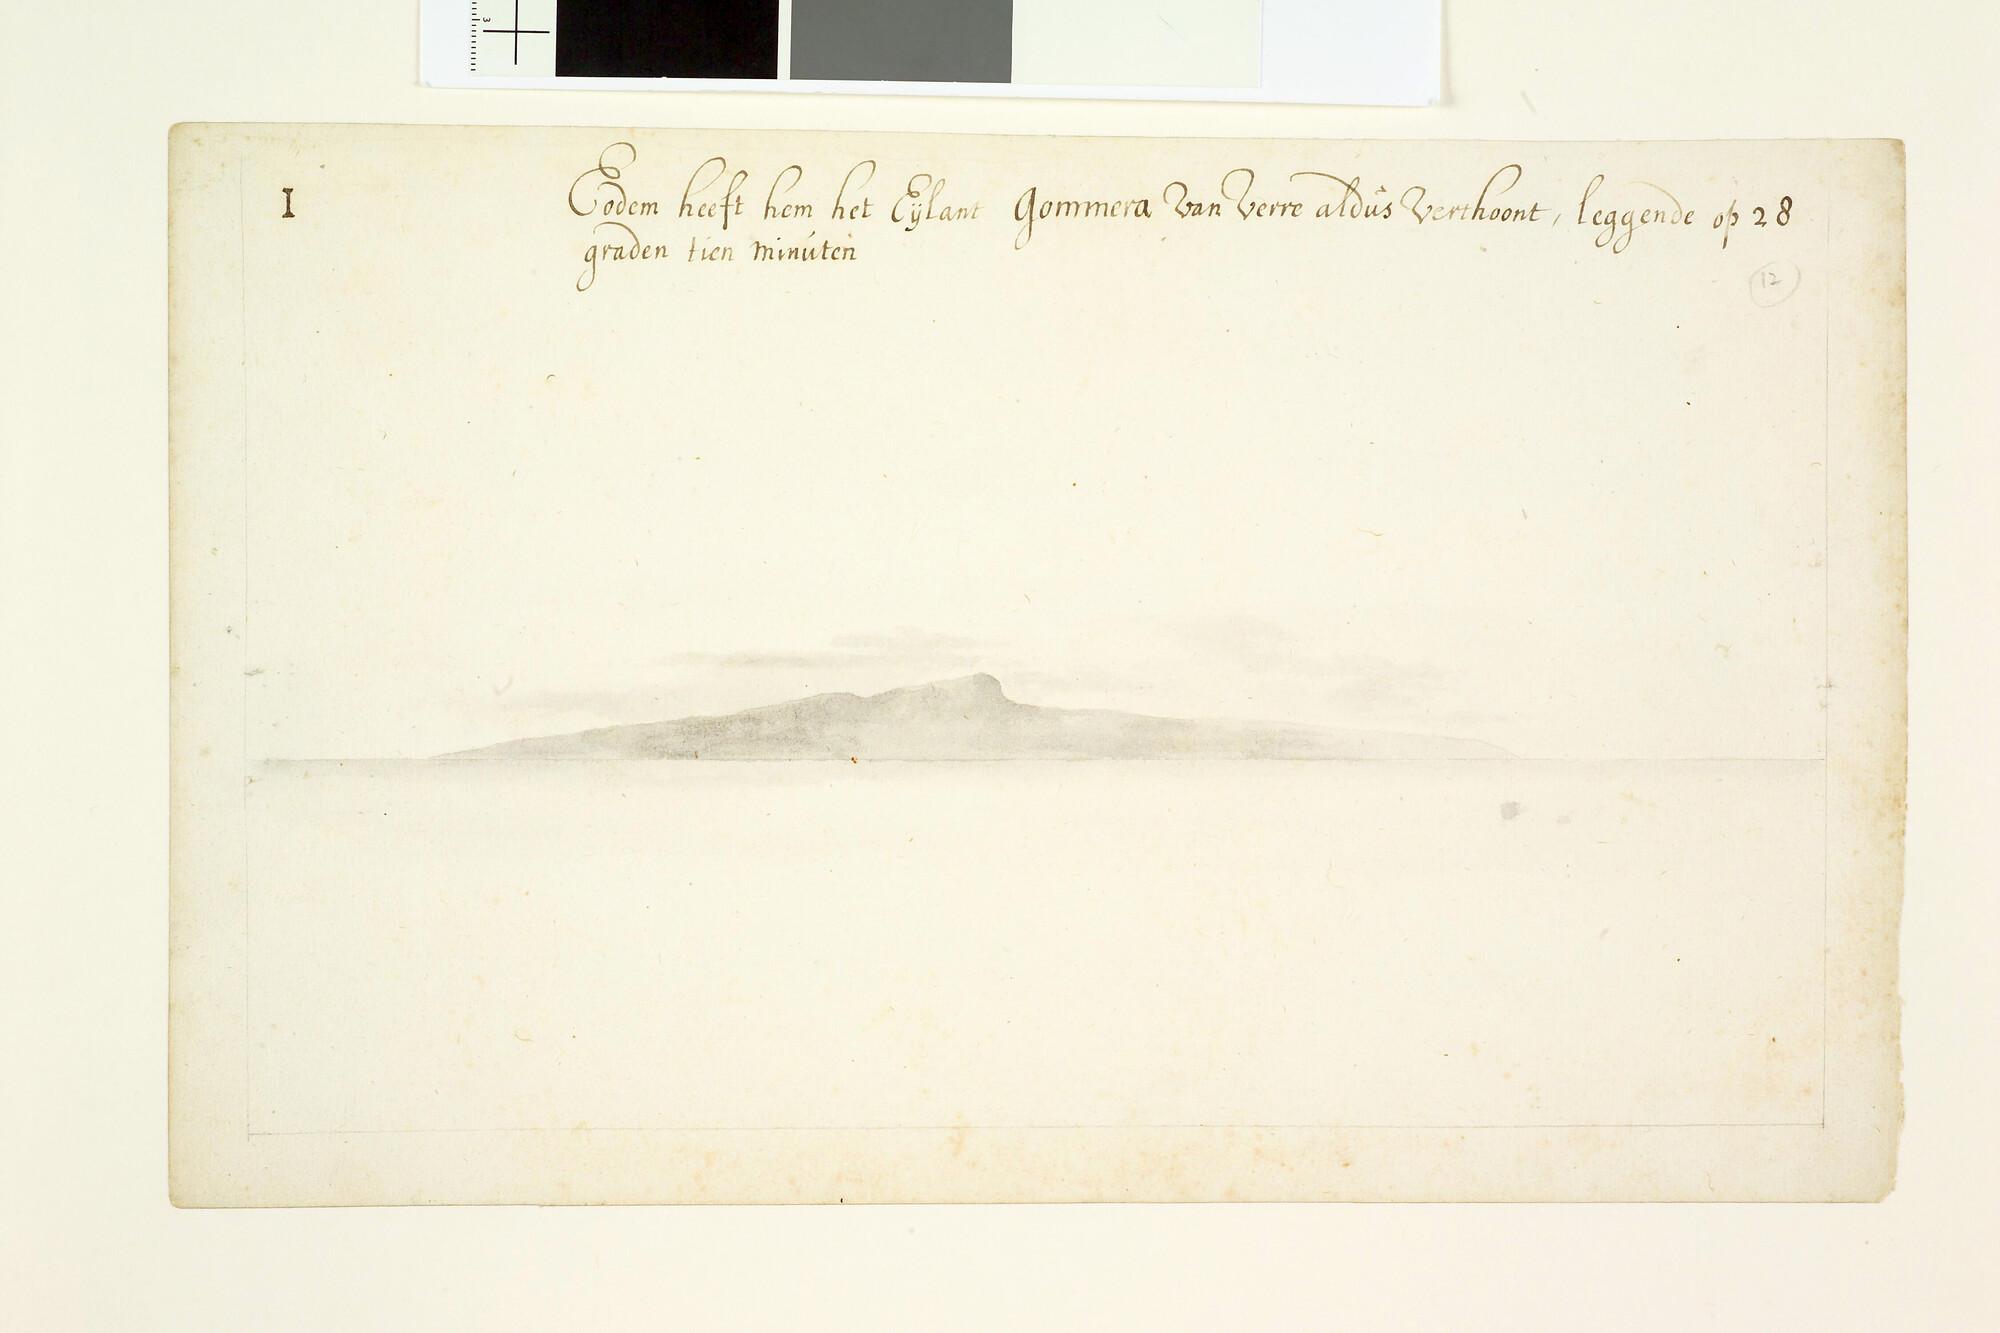 3
I
Eodem heeft hem het Eijlant Gommera Van Verre aldus Verthoont, leggende op 28
graden tien minuten
12